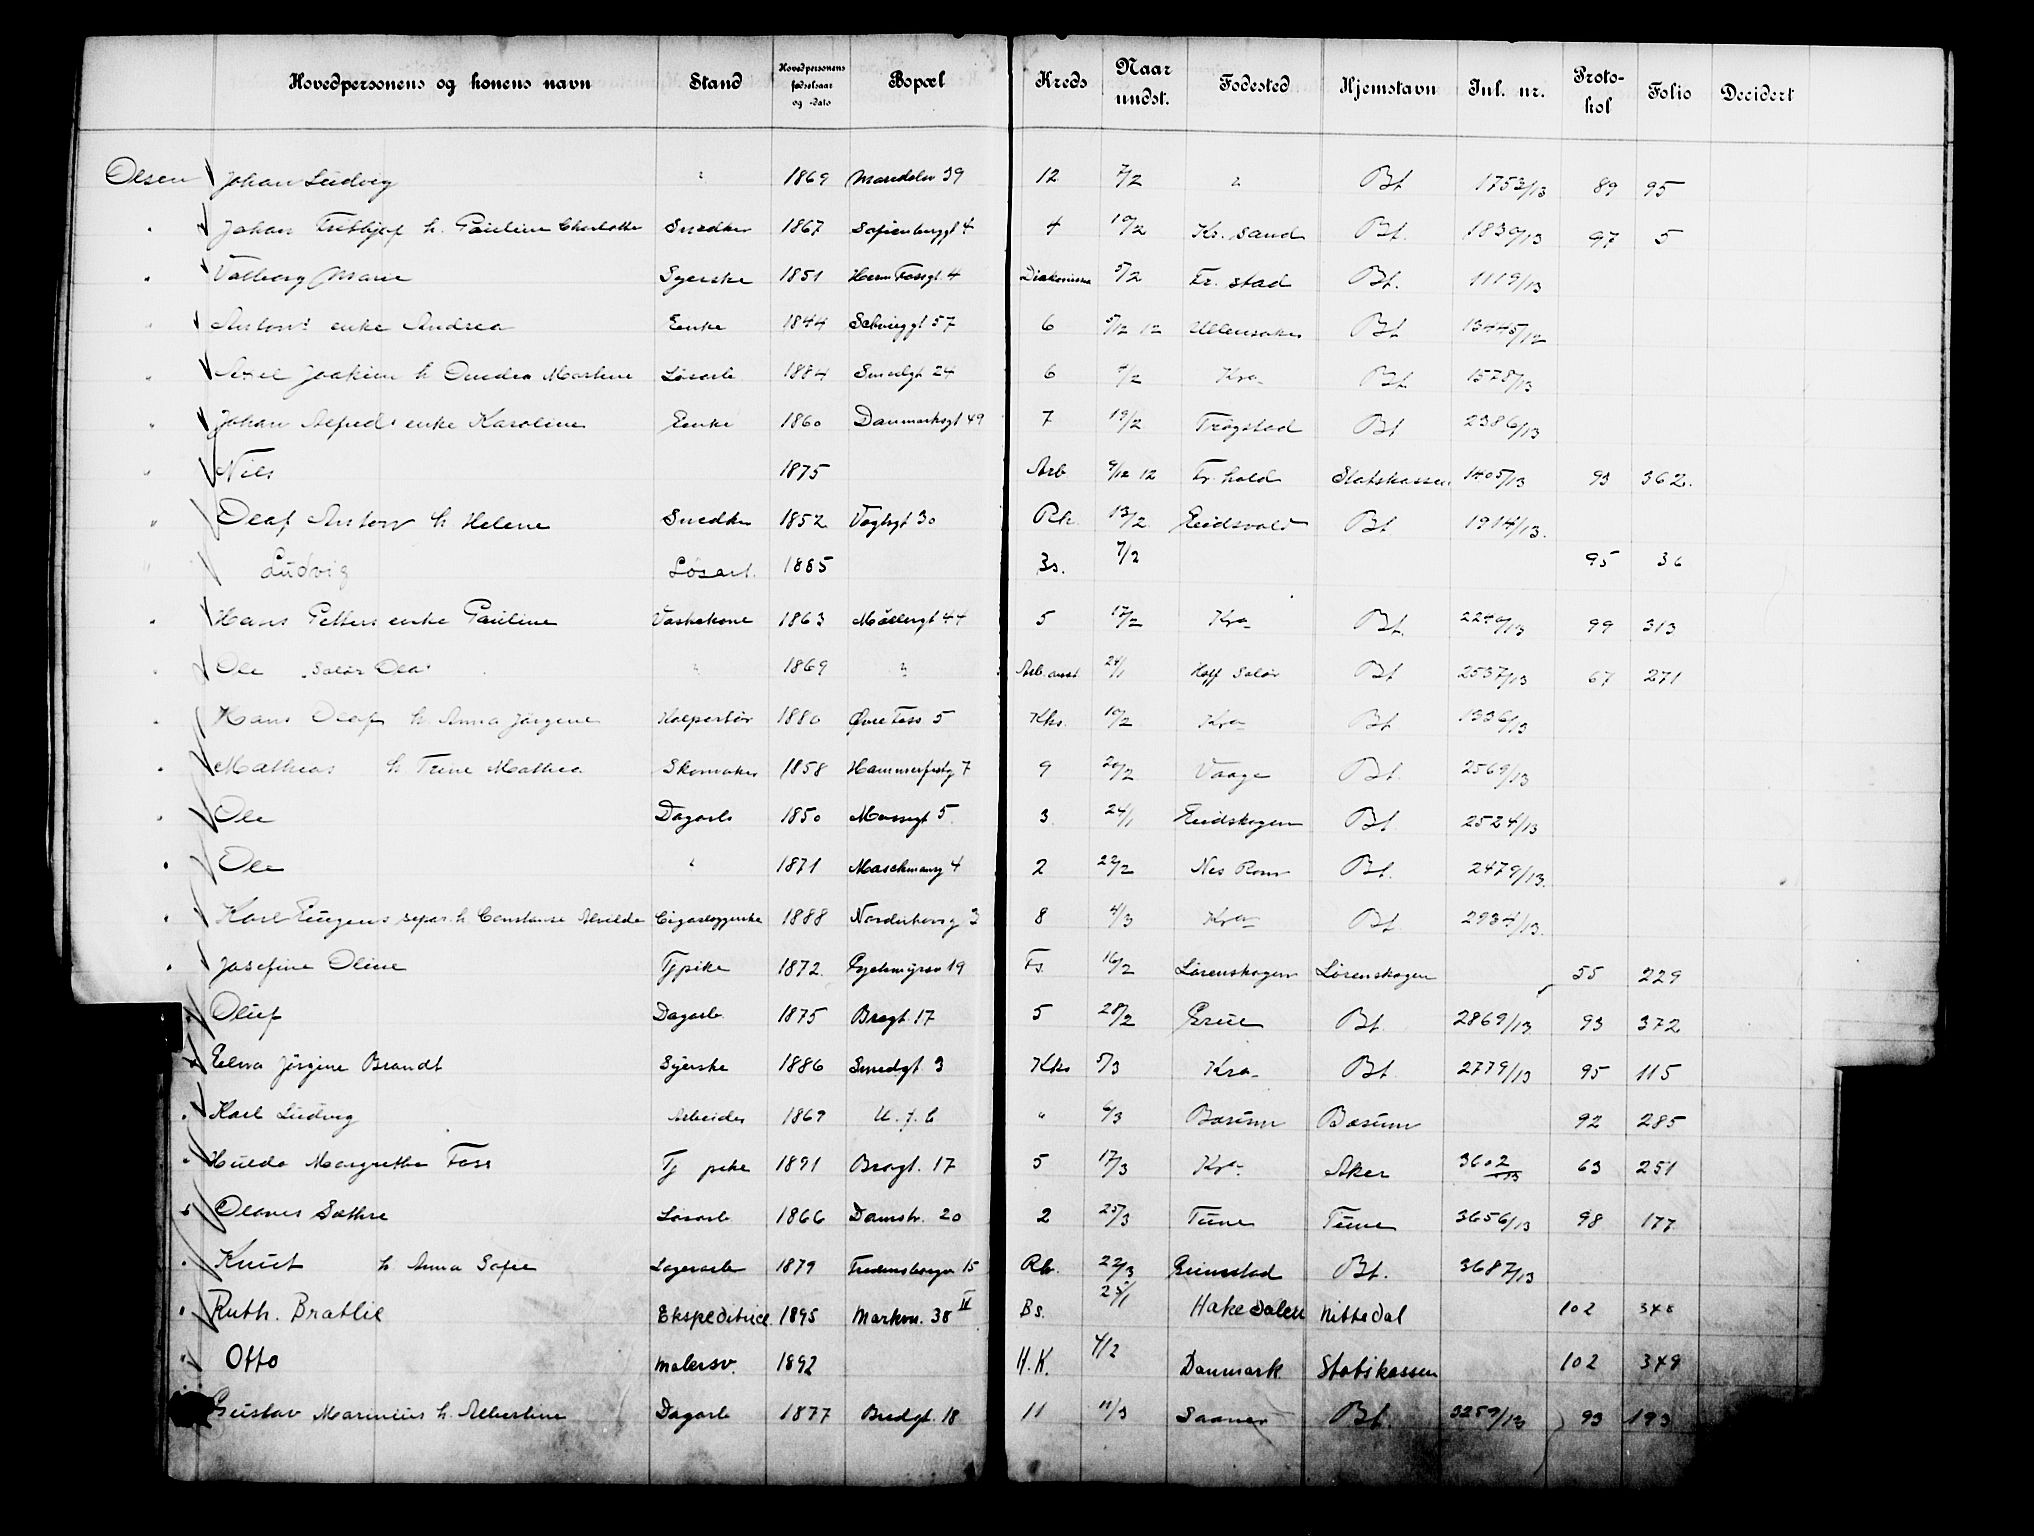 Hovedpersonens og konens navn Stand Hovedpersonens fødselsaar og -dato Bopæl Kreds Naar undst. Fødested Hjemstavn Inl. nr. Proto-kol Folio Decidert
Olsen Johan Ludvig " 1869 Maridalsv 39 12 7/2 " Bt 1753/13 89 95
" Johan Frithjof h. Pauline Charlotte Snedker 1867 Sofienberggt 4 4 10/2 Kr. sand Bt. 1830/13 97 5
" Valborg Marie Syerske 1851 Herm Fossgt. 4 Diakonissa 5/2 Fr. stad Bt. 1119/13
" Antons enke Andrea Enke 1844 Schwieggt 57 6 5/12 12 Ullensaker Bt 13445/12
" Axel Joakim h Ondea Martine Løsarb 1884 Smedgt 24 6 /2 Kra Bt 1578/13
" Johan Alfreds enke Karoline Enke 1860 Danmarksgt 49 7 19/2 Trøgstad Bt 2386/13
" Nils 1875 Arb 9/12 12 Fr. hald Statskassen 1405/13 93 362.
" Olaf Anton h Helene Snedker 1852 Vogtsgt 30 Rh. 13/2 Eidsvold Bt 1914/13.
" Ludvig Løsarb. 1885 Bs. 7/2 95 36
" Hans Petters enke Pauline Vaskekone 1863 Møllergt 44 5 17/2 Kra Bt. 2240/13 99 313
" Ole "Solør Ola" " 1869 " Arb.anst 24/1 Hoff Solør Bt 2537/13 67 271
" Hans Olaf h Anna Jørgine Kolportør 1880 Øvre Foss 5 Kks. 10/2 Kra Bt 1336/13
" Mathias h Trine Mathea Skomaker 1858 Hammerfestg 7 9 20/2 Vaage Bt. 2569/13
" Ole Dagarb 1850 Mossegt 5 3. 24/1 Eidskogen Bt 2524/13
" Ole " 1871 Maschmansg 4 2 22/2 Nes Rom Bt. 2479/13.
" Karl Eugens separ. h. Constanse Alvilde Cigarleggerske 1888 Norderhovsg 3 8 4/3 Kra Bt. 2934/13.
" Josefine Oline Tjpike 1872. Gjetmyrsv 19 Fs. 16/2 Lørenskogen Lørenskogen 55 229
" Oluf Dagarb. 1875 Bragt. 17 5 28/2 Grue Bt. 2869/13 93 372
" Elna Jørgine Brandt Syerske 1886 Smedgt. 3 Kks 5/3 Kra Bt. 2779/13 95 115
" Karl Ludvig Arbeider 1869 U. f. b " 6/3 Bærum Bærum 92 285
" Hulda Margrethe Foss Tj pike 1891 Bragt. 17 5 17/3 Kra. Aker 3602/13 63 251
" Olaves Sæthre Løsarb 1866 Damstr. 20 2 25/3 Tune Tune 3656/13 98 177
" Knut h Anna Sofie Lagerarb 1879 Fredensborgv 15 Rh. 22/3 Grimstad Bt. 3687/13
" Ruth. Bratlie Ekspeditrice 1895 Markvn. 38 II Bs. 25/1 Hakedalen Nittedal 102 348
" Otto Malersv. 1892 H.K. 4/2 Danmark Statskassen 102 349
Gustav Marinius h. Albertine Dagarb 1877 Bredgt. 18 11 11/3 Saaner Bt. 3259/13 93 193